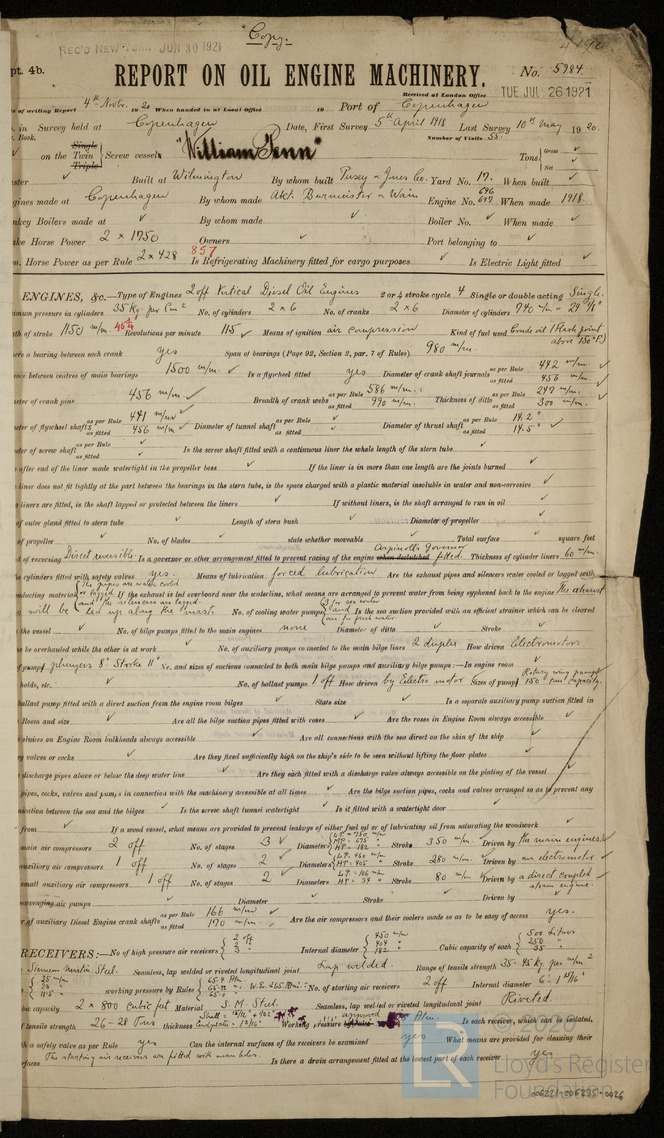 "Copy."
REC'D NEW YORK JUN 30 1921
pt. 4b.
REPORT ON OIL ENGINE MACHINERY.
No. 5984.
Received at London Office
TUE JUL 26 1921
of writing Report 4th Novbr. 1920 When handed in at Local Office 19 Port of Copenhagen
in Survey held at Copenhagen Date, First Survey 5th April 1918 Last Survey 10th May 1920.
Book. Number of Visits 55.
on the Single Twin Triple Screw vessel "William Penn" Tons Gross Net
Built at Wilmington By whom built Pusey & Jones Co. Yard No. 17. When built
gines made at Copenhagen By whom made Akt. Burmeister & Wain Engine No. 696 697 When made 1918.
nkey Boilers made at By whom made Boiler No. When made
ake Horse Power 2 x 1750 Owners Port belonging to
m. Horse Power as per Rule 2 x 428 857 Is Refrigerating Machinery fitted for cargo purposes Is Electric Light fitted
ENGINES, &c.—Type of Engines 2 off Vertical Diesel Oil Engines 2 or 4 stroke cycle 4 Single or double acting Single.
imum pressure in cylinders 35 Kg. per Cm² No. of cylinders 2 x 6 No. of cranks 2 x 6 Diameter of cylinders 740 m/m = 29 1/8"
th of stroke 1150 m/m. Revolutions per minute 115 Means of ignition air compression Kind of fuel used Crude oil (Flash point above 150° F.)
ere a bearing between each crank yes Span of bearings (Page 92, Section 2, par. 7 of Rules) 980 m/m
nce between centres of main bearings 1500 m/m. Is a flywheel fitted yes Diameter of crank shaft journals as per Rule 442 m/m. as fitted 456 m/m.
eter of crank pins 456 m/m Breadth of crank webs as per Rule 586 m/m. as fitted 990 m/m. Thickness of ditto as per Rule 247 m/m as fitted 300 m/m.
eter of flywheel shafts as per Rule 441 m/m as fitted 456 m/m Diameter of tunnel shaft as per Rule as fitted Diameter of thrust shaft as per Rule 14.2" as fitted 14.5"
eter of screw shaft as per Rule as fitted Is the screw shaft fitted with a continuous liner the whole length of the stern tube
after end of the liner made watertight in the propeller boss If the liner is in more than one length are the joints burned
liner does not fit tightly at the part between the bearings in the stern tube, is the space charged with a plastic material insoluble in water and non-corrosive
liners are fitted, is the shaft lapped or protected between the liners If without liners, is the shaft arranged to run in oil
of outer gland fitted to stern tube Length of stern bush Diameter of propeller
of propeller No. of blades state whether moveable Total surface square feet
d of reversing Direct reversible. Is a governor or other arrangement fitted to prevent racing of the engine when declutched Aspinalls Governor fitted. Thickness of cylinder liners 60 m/m.
e cylinders fitted with safety valves yes. Means of lubrication forced lubrication Are the exhaust pipes and silencers water cooled or lagged with
nducting material the pipes are water cooled or lagged and the silencers are lagged. If the exhaust is led overboard near the waterline, what means are arranged to prevent water from being syphoned back to the engine The exhaust
will be led up along the mast. No. of cooling water pumps Is the sea suction provided with an efficient strainer which can be cleared
the vessel No. of bilge pumps fitted to the main engines none Diameter of ditto Stroke
be overhauled while the other is at work No. of auxiliary pumps connected to the main bilge lines 2 duplex How driven Electromotors.
of pumps plungers 8" Stroke 11" No. and sizes of suctions connected to both main bilge pumps and auxiliary bilge pumps:—In engine room
holds, etc. No. of ballast pumps 1 off How driven by Electro motor Sizes of pumps Rotary wing pump 150 tons capacity.
ballast pump fitted with a direct suction from the engine room bilges State size Is a separate auxiliary pump suction fitted in
Room and size Are all the bilge suction pipes fitted with roses Are the roses in Engine Room always accessible
sluices on Engine Room bulkheads always accessible Are all connections with the sea direct on the skin of the ship
y valves or cocks Are they fixed sufficiently high on the ship's side to be seen without lifting the floor plates
discharge pipes above or below the deep water line Are they each fitted with a discharge valve always accessible on the plating of the vessel
pipes, cocks, valves and pumps in connection with the machinery accessible at all times Are the bilge suction pipes, cocks and valves arranged so as to prevent any
ication between the sea and the bilges Is the screw shaft tunnel watertight Is it fitted with a watertight door
from If a wood vessel, what means are provided to prevent leakage of either fuel oil or of lubricating oil from saturating the woodwork
main air compressors 2 off No. of stages 3 Diameters L.P. = 750 m/m M.P. = 675 " H.P. = 182 " Stroke 350 m/m. Driven by the main engines.
auxiliary air compressors 1 off No. of stages 2 Diameters L.P. 460 m/m H.P. = 405 " Stroke 280 m/m. Driven by an electromotor.
small auxiliary air compressors 1 off No. of stages 2 Diameters L.P. = 106 m/m H.P. = 34 " Stroke 80 m/m Driven by a direct coupled steam engine.
cavenging air pumps Diameter Stroke Driven by
r of auxiliary Diesel Engine crank shafts as per Rule 166 m/m as fitted 170 m/m. Are the air compressors and their coolers made so as to be easy of access yes.
RECEIVERS:—No of high pressure air receivers 2 off 2 " 3 " Internal diameter 450 m/m 404 " 182 " Cubic capacity of each 500 Litres 250 " 35 "
Siemens Martin Steel. Seamless, lap welded or riveted longitudinal joint Lap welded. Range of tensile strength 35-45 Kg. per m/m²
working pressure by Rules No. of starting air receivers 2 off Internal diameter 6'-1 15/16"
bic capacity 2 x 800 cubic feet Material S. M. Steel. Seamless, lap welded or riveted longitudinal joint Riveted
f tensile strength 26-28 Tons thickness Working pressure approved Atm. Is each receiver, which can be isolated,
h a safety valve as per Rule yes Can the internal surfaces of the receivers be examined yes What means are provided for cleaning their
rfaces The starting air receivers are fitted with manholes. Is there a drain arrangement fitted at the lowest part of each receiver yes.
© 2020
Lloyd's Register
Foundation
006221-006235-0026